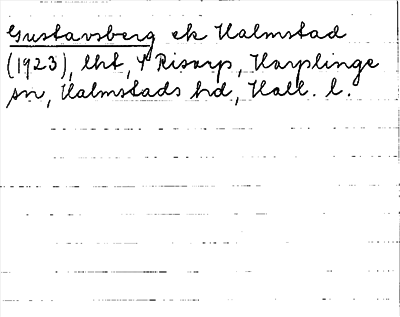 Gustavsberg ek Halmstad
(1923), lht, 4 Risarp, Harplinge
sn, Halmstads hd, Hall. l.